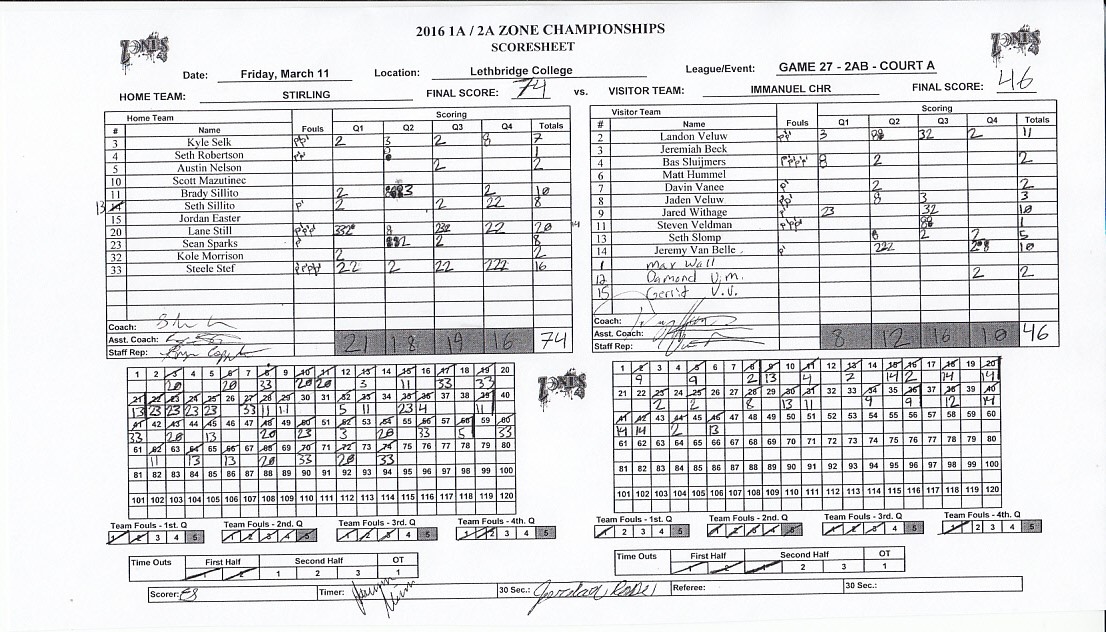 2016 1A / 2A ZONE CHAMPIONSHIPS
SCORESHEET
ZONES ZONES
Date: Friday, March 11 Location: Lethbridge College League/Event: GAME 27 - 2AB - COURT A
HOME TEAM: STIRLING FINAL SCORE: 74 vs. VISITOR TEAM: IMMANUEL CHR FINAL SCORE: 46
Home Team Scoring
# Name Fouls Q1 Q2 Q3 Q4 Totals
3 Kyle Selk 2 3 2 7
4 Seth Robertson 1
5 Austin Nelson 2 2
10 Scott Mazutinec
11 Brady Sillito 2 2 10
13 14 Seth Sillito 2 2 22 8
15 Jordan Easter
20 Lane Still 22 20
23 Sean Sparks 2 8
32 Kole Morrison 2 2
33 Steele Stef 22 2 22 222 16
Coach:
Asst. Coach: 21 18 19 16 74
Staff Rep:
Visitor Team Scoring
# Name Fouls Q1 Q2 Q3 Q4 Totals
2 Landon Veluw 3 32 2 11
3 Jeremiah Beck
4 Bas Sluijmers 2 2
6 Matt Hummel
7 Davin Vanee 2 2
8 Jaden Veluw 3 3
9 Jared Withage 23 32 10
11 Steven Veldman 1
13 Seth Slomp 2 2 5
14 Jeremy Van Belle 222 10
1 Max Wall
12 Damond V.M. 2 2
15 Gerrit V.V.
Coach:
Asst. Coach: 8 12 16 10 46
Staff Rep:
1 2 3 4 5 6 7 8 9 10 11 12 13 14 15 16 17 18 19 20
20 20 33 20 20 3 11 33 33
21 22 23 24 25 26 27 28 29 30 31 32 33 34 35 36 37 38 39 40
13 23 23 23 23 33 11 11 5 11 23 4 11
41 42 43 44 45 46 47 48 49 50 51 52 53 54 55 56 57 58 59 60
33 20 13 20 23 3 20 33 5 33
61 62 63 64 65 66 67 68 69 70 71 72 73 74 75 76 77 78 79 80
11 13 13 20 33 20 33
81 82 83 84 85 86 87 88 89 90 91 92 93 94 95 96 97 98 99 100
101 102 103 104 105 106 107 108 109 110 111 112 113 114 115 116 117 118 119 120
ZONES
1 2 3 4 5 6 7 8 9 10 11 12 13 14 15 16 17 18 19 20
9 9 2 13 4 2 14 2 14 14
21 22 23 24 25 26 27 28 29 30 31 32 33 34 35 36 37 38 39 40
2 2 8 13 11 9 9 12 14
41 42 43 44 45 46 47 48 49 50 51 52 53 54 55 56 57 58 59 60
14 14 2 13
61 62 63 64 65 66 67 68 69 70 71 72 73 74 75 76 77 78 79 80
81 82 83 84 85 86 87 88 89 90 91 92 93 94 95 96 97 98 99 100
101 102 103 104 105 106 107 108 109 110 111 112 113 114 115 116 117 118 119 120
Team Fouls - 1st. Q Team Fouls - 2nd. Q Team Fouls - 3rd. Q Team Fouls - 4th. Q
1 2 3 4 5 1 2 3 4 5 1 2 3 4 5 1 2 3 4 5
Team Fouls - 1st. Q Team Fouls - 2nd. Q Team Fouls - 3rd. Q Team Fouls - 4th. Q
1 2 3 4 5 1 2 3 4 5 1 2 3 4 5 1 2 3 4 5
Time Outs First Half Second Half OT
1 2 1 2 3 1
Time Outs First Half Second Half OT
1 2 1 2 3 1
Scorer: Timer: 30 Sec.: Referee: 30 Sec.: